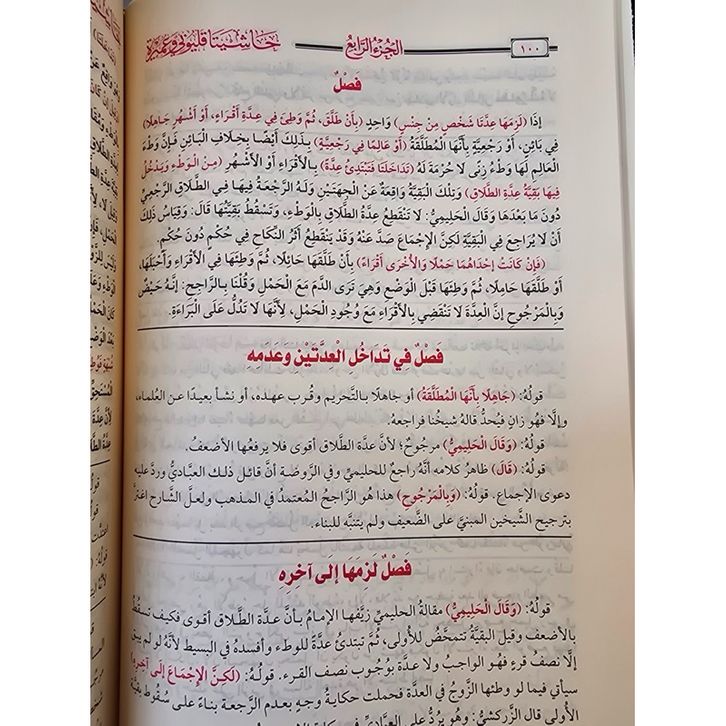 ١٠٠
الجزء الرابع
حاشيتا قليوبي وعميرة
فَصْلٌ
إِذَا (لَزِمَهَا عِدَّتَا شَخْصٍ مِنْ جِنْسٍ) وَاحِدٍ (بِأَنْ طَلَّقَ، ثُمَّ وَطِئَ فِي عِدَّةِ أَقْرَاءٍ، أَوْ أَشْهُرٍ جَاهِلًا)
فِي بَائِنٍ، أَوْ رَجْعِيَّةٍ بِأَنَّهَا الْمُطَلَّقَةُ (أَوْ عَالِمًا فِي رَجْعِيَّةٍ) بِذَلِكَ أَيْضًا بِخِلَافِ الْبَائِنِ فَإِنَّ وَطْءَ
الْعَالِمِ لَهَا وَطْءُ زِنًى لَا حُرْمَةَ لَهُ (تَدَاخَلَتَا فَتَبْتَدِئُ عِدَّةً) بِالْأَقْرَاءِ أَوْ الْأَشْهُرِ (مِنَ الْوَطْءِ وَيَدْخُلُ
فِيهَا بَقِيَّةُ عِدَّةِ الطَّلَاقِ) وَتِلْكَ الْبَقِيَّةُ وَاقِعَةٌ عَنْ الْجِهَتَيْنِ وَلَهُ الرَّجْعَةُ فِيهَا فِي الطَّلَاقِ الرَّجْعِيِّ
دُونَ مَا بَعْدَهَا وَقَالَ الْحَلِيمِيُّ: لَا تَنْقَطِعُ عِدَّةُ الطَّلَاقِ بِالْوَطْءِ، وَتَسْقُطُ بَقِيَّتُهَا قَالَ: وَقِيَاسُ ذَلِكَ
أَنْ لَا يُرَاجِعَ فِي الْبَقِيَّةِ لَكِنَّ الْإِجْمَاعَ صَدَّ عَنْهُ وَقَدْ يَنْقَطِعُ أَثَرُ النِّكَاحِ فِي حُكْمٍ دُونَ حُكْمٍ.
(فَإِنْ كَانَتْ إِحْدَاهُمَا حَمْلًا وَالْأُخْرَى أَقْرَاءً) بِأَنْ طَلَّقَهَا حَائِلًا، ثُمَّ وَطِئَهَا فِي الْأَقْرَاءِ وَأَحْبَلَهَا،
أَوْ طَلَّقَهَا حَامِلًا، ثُمَّ وَطِئَهَا قَبْلَ الْوَضْعِ وَهِيَ تَرَى الدَّمَ مَعَ الْحَمْلِ وَقُلْنَا بِالرَّاجِحِ: إِنَّهُ حَيْضٌ
وَبِالْمَرْجُوحِ إِنَّ الْعِدَّةَ لَا تَنْقَضِي بِالْأَقْرَاءِ مَعَ وُجُودِ الْحَمْلِ، لِأَنَّهَا لَا تَدُلُّ عَلَى الْبَرَاءَةِ.
فَصْلٌ فِي تَدَاخُلِ الْعِدَّتَيْنِ وَعَدَمِهِ
قولُهُ: (جَاهِلًا بِأَنَّهَا الْمُطَلَّقَةُ) أو جاهلًا بالتَّحريم وقُرب عهده، أو نشأ بعيدًا عن العُلماء،
وإلَّا فهُو زانٍ فيُحدُّ قالهُ شيخُنا فراجعهُ.
قولُهُ: (وَقَالَ الْحَلِيمِيُّ) مرجُوحٌ؛ لأنَّ عدَّة الطَّلاق أقوى فلا يرفعُها الأضعفُ.
قولُهُ: (قَالَ) ظاهرُ كلامه أنَّهُ راجعٌ للحليميِّ وفي الرَّوضة أنَّ قائل ذلك العباديُّ وردَّ عليه
دعوى الإجماع. قولُهُ: (وَبِالْمَرْجُوحِ) هذا هُو الرَّاجحُ المُعتمدُ في المذهب ولعلَّ الشَّارح اغترَّ
بترجيح الشَّيخين المبنيِّ على الضَّعيف ولم يتنبَّه للبناء.
فَصْلٌ لَزِمَهَا إِلَى آخِرِهِ
قولُهُ: (وَقَالَ الْحَلِيمِيُّ) مقالةُ الحليميِّ زيَّفها الإمامُ بأنَّ عدَّة الطَّلاق أقوى فكيف تسقُطُ
بالأضعف وقيل البقيَّةُ تتمحَّضُ للأُولى، ثُمَّ تبتدئُ عدَّةً للوطء وأفسدهُ في البسيط لأنَّهُ لو لم يبق
إلَّا نصفُ قرءٍ فهُو الواجبُ ولا عدَّة بوُجُوب نصف القرء. قولُهُ: (لَكِنَّ الْإِجْمَاعَ إِلَى آخِرِهِ)
سيأتي فيما لو وطئها الزَّوجُ في العدَّة فحملت حكايةُ وجهٍ بعدم الرَّجعة بناءً على سُقُوط بقيَّة
الأُولى قال الزَّركشيُّ: وهُو يرُدُّ على العبَّاديِّ في